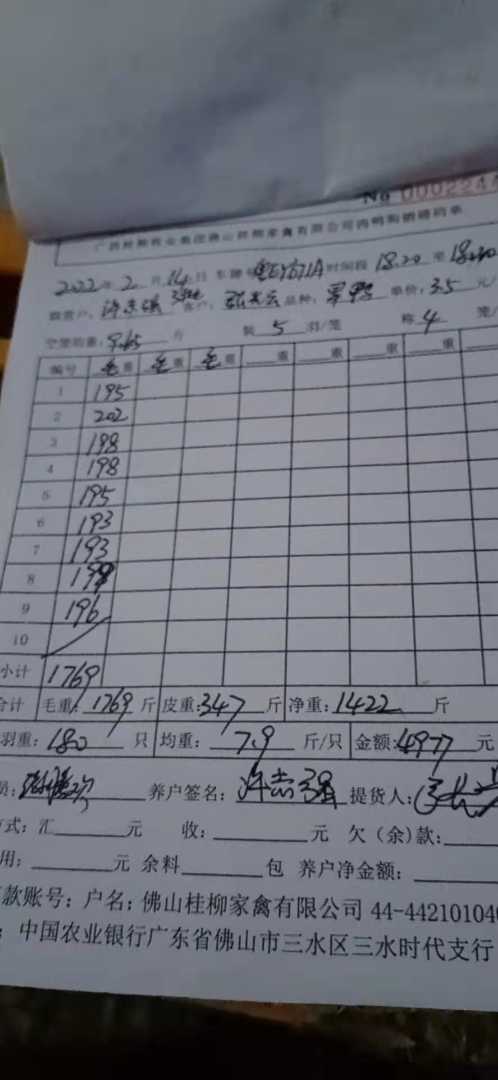 No 0002244
2022年2月14日 车牌号 时间段 18.20 至 18.30
户: 品种: 单价: 3.5 元
空笼均重: 9.65 斤 装 5 羽/笼 称 4 笼/
编号 毛重 毛重 毛重 重 重 重 重
1 195
2 202
3 198
4 198
5 195
6 193
7 193
8 199
9 196
10
小计 1769
合计 毛重: 1769 斤 皮重: 347 斤 净重: 1422 斤
羽重: 180 只 均重: 7.9 斤/只 金额: 4977 元
员: 养户签名: 许志强 提货人:
式: 汇 元 收: 元 欠(余)款:
用: 元 余料 包 养户净金额:
款账号: 户名: 佛山桂柳家禽有限公司 44-44210104
: 中国农业银行广东省佛山市三水区三水时代支行